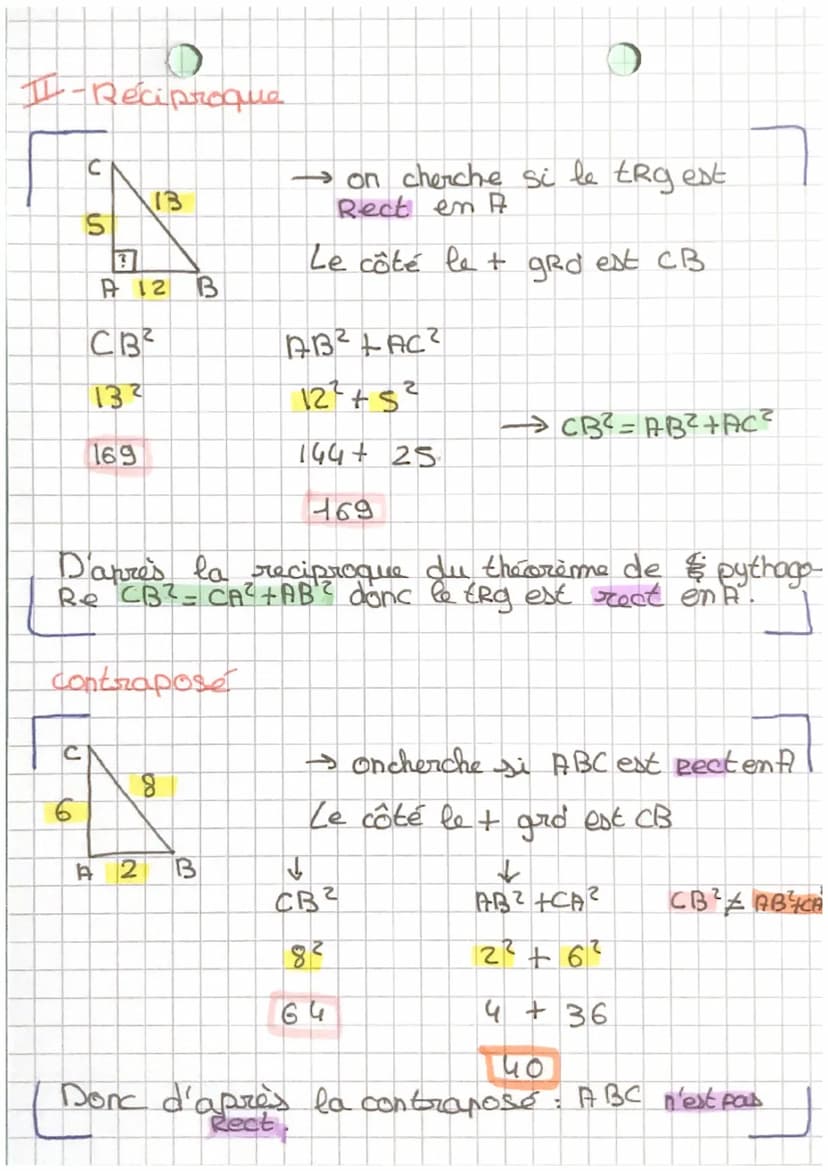 II - Réciproque
C
13
→ on cherche si le tRg est
Rect en A
5
?
A 12 B
Le côté le + gRd est CB
CB² AB² + AC²
13² 12² + 5²
→ CB² = AB² + AC²
169 144 + 25
169
D'après la reciproque du théorème de pythago-
Re CB² = CA² + AB² donc le tRg est rect en A.
Contraposé
C
→ on cherche si ABC est Rect en A
8
6
Le côté le + grd est CB
A 2 B
↓ ↓
CB² AB² + CA² CB² ≠ AB²+CA²
8² 2² + 6²
64 4 + 36
40
Donc d'après la contraposé : ABC n'est pas
Rect.